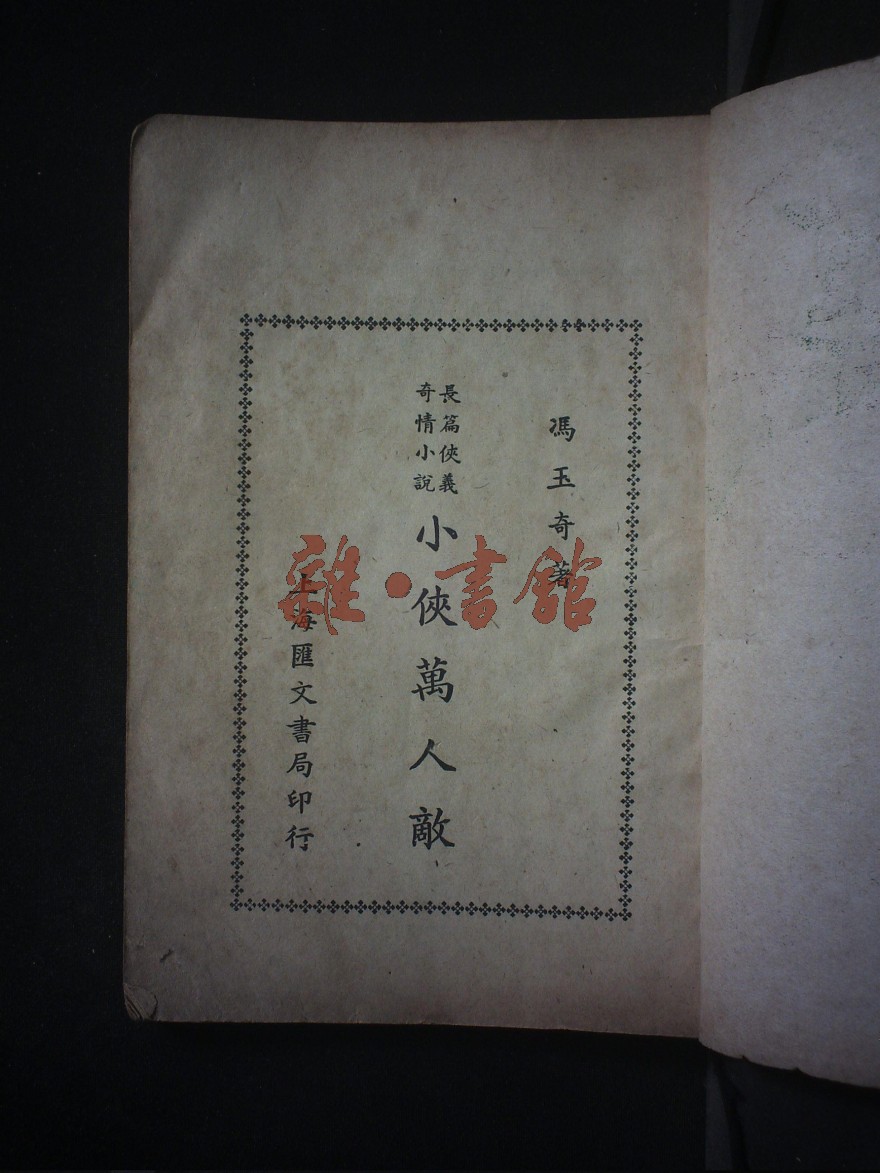 馮玉奇著
長篇俠義
奇情小說
小俠萬人敵
上海匯文書局印行
雜·書館